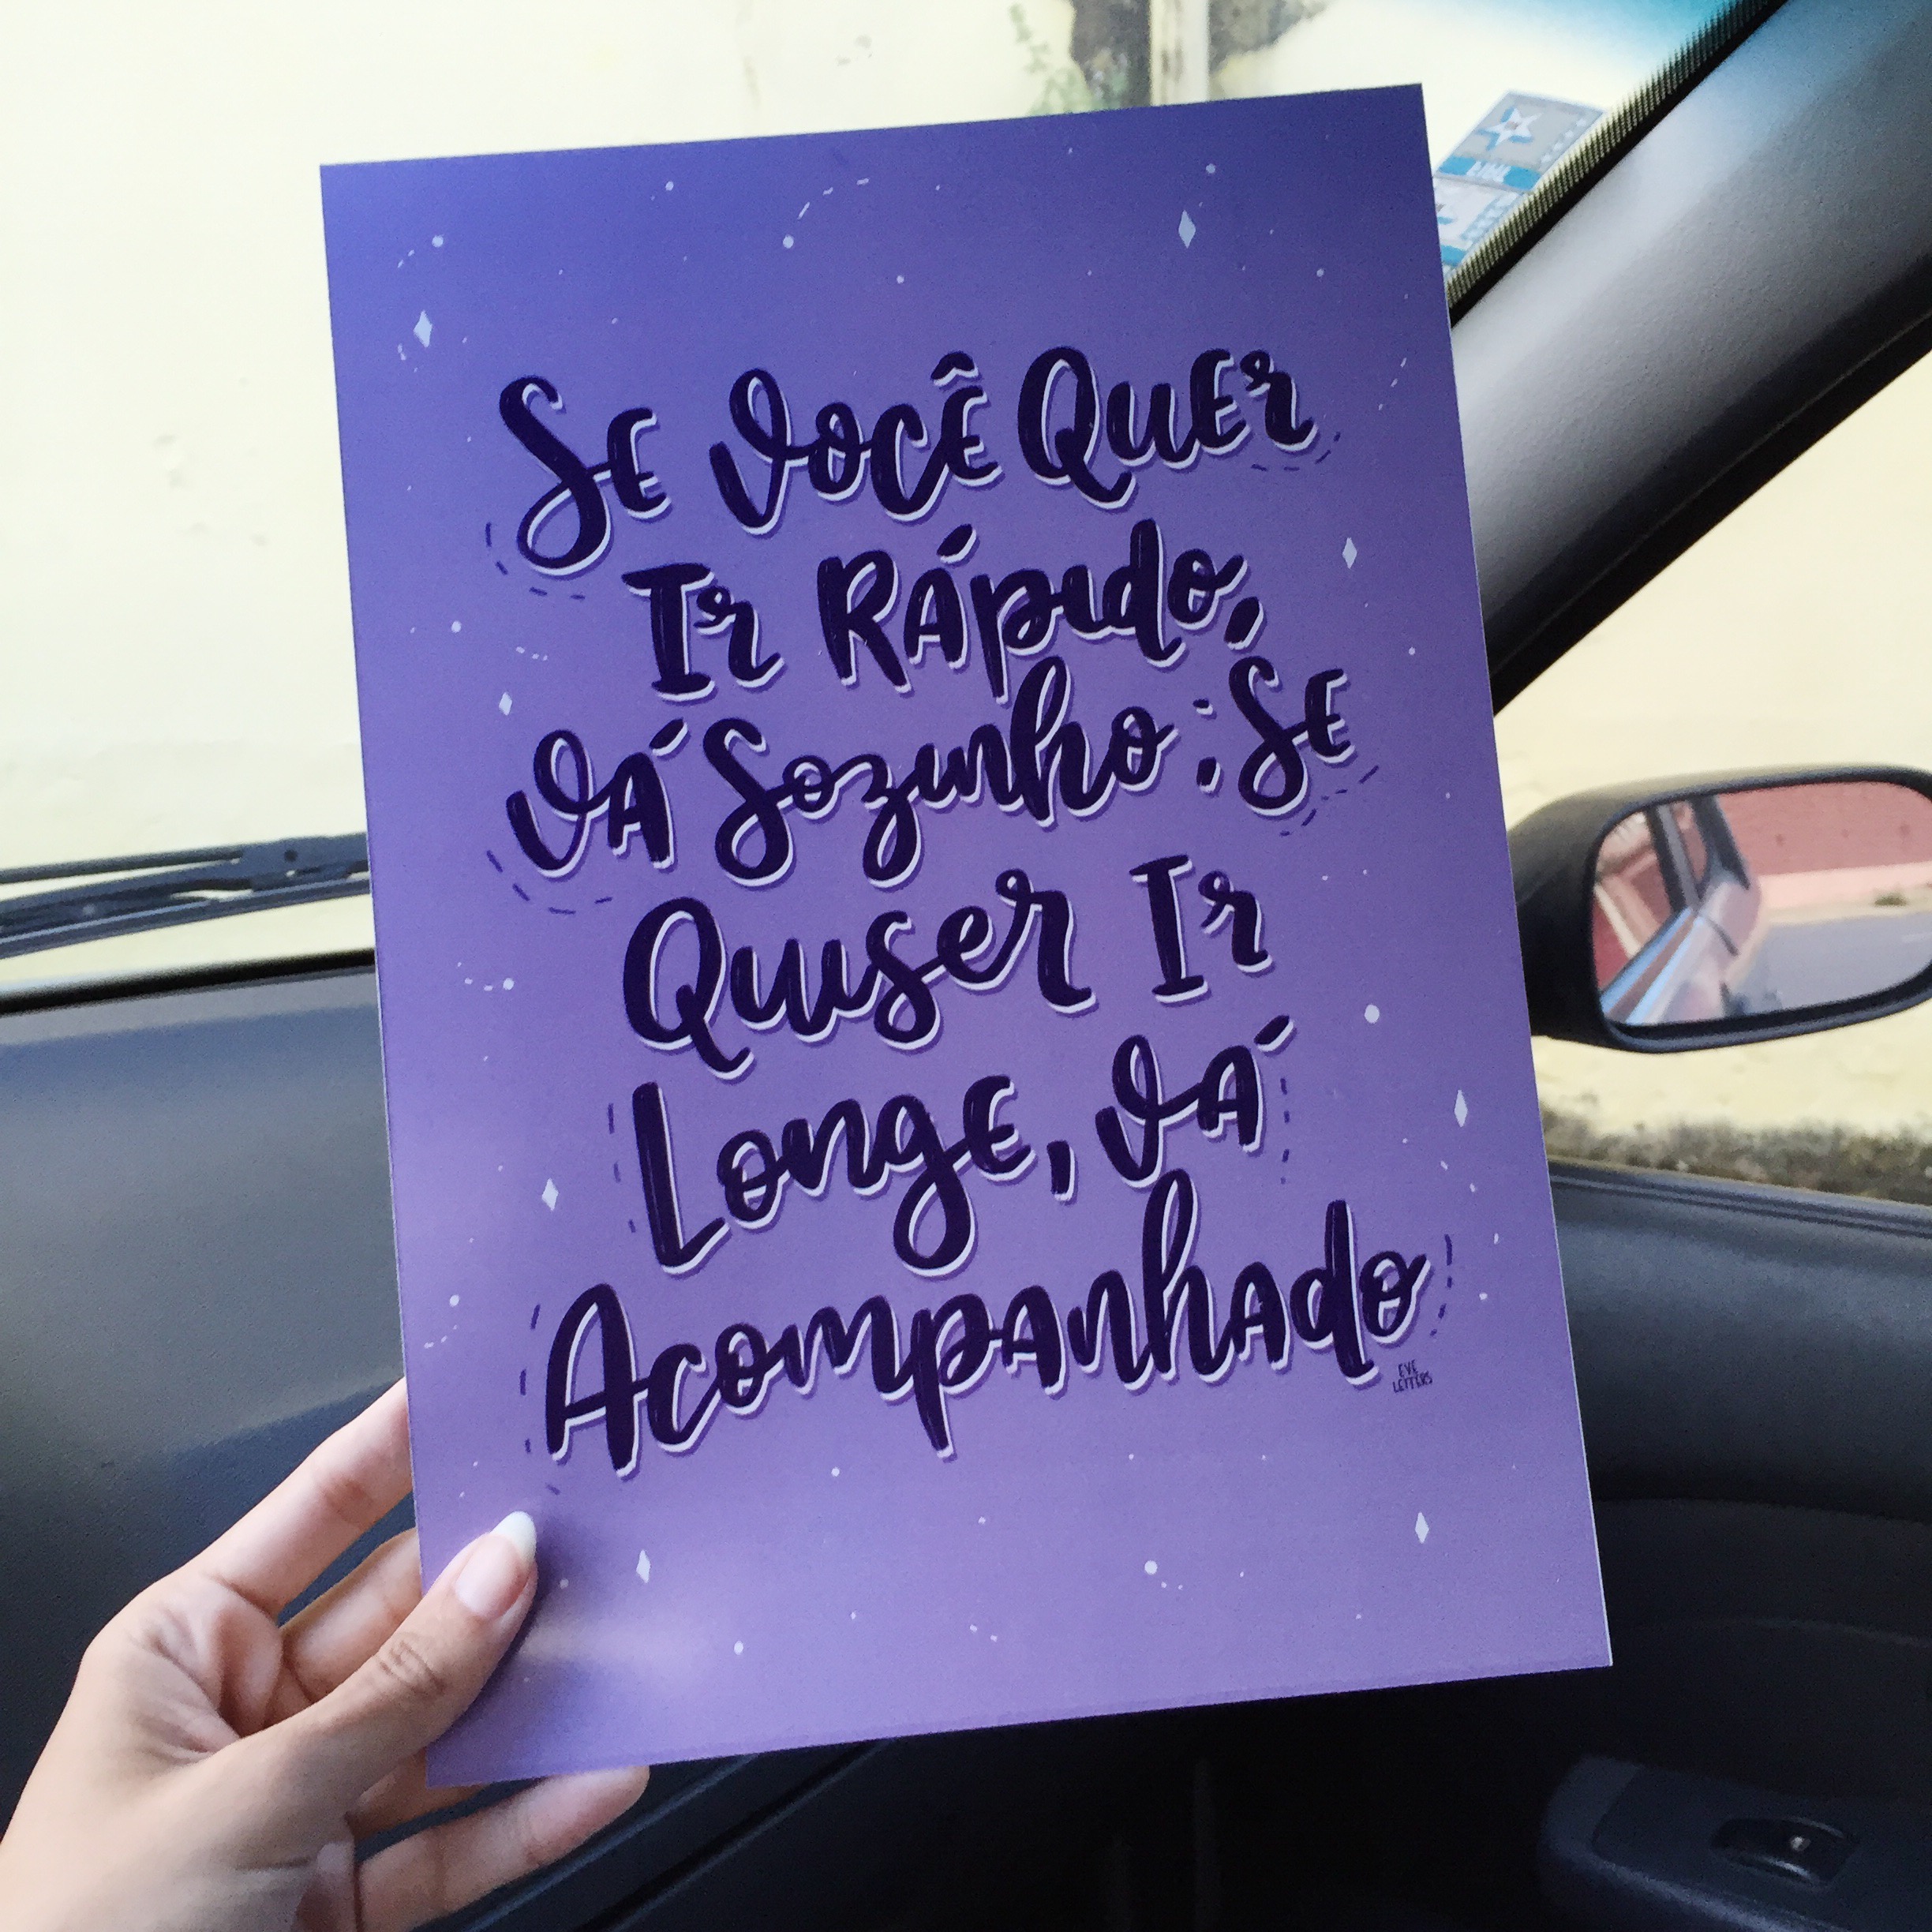 Se Você Quer
Ir Rápido,
Vá Sozinho; Se
Quiser Ir
Longe, Vá
Acompanhado
EVE
LETTERS